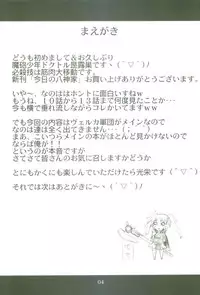 まえがき
どうも初めまして＆お久しぶり
魔砲少年ドクトル昆露巣です ヽ(´▽`)/
必殺技は筋肉大移動です。
新刊「今日の八神家」お買い上げありがとうございます。
いや～、なのははホントに面白いすねｗ
もうね、１０話から１３話まで何度見たことか・・・
今も横で垂れ流しながらコレかいてますｗ
でも今回の内容はヴェルカ軍団がメインなので
なのは達は全く出てきません (；´　`)
まぁ、こいつらメインの本がほとんど見かけないので
ならば俺が！！
というのが本音です
さてさて皆さんのお気に召しますかどうか
とにもかくにも楽しんでいただけたら光栄です (´▽`)/
それでは次はあとがきに～ヽ(´▽`)/
04